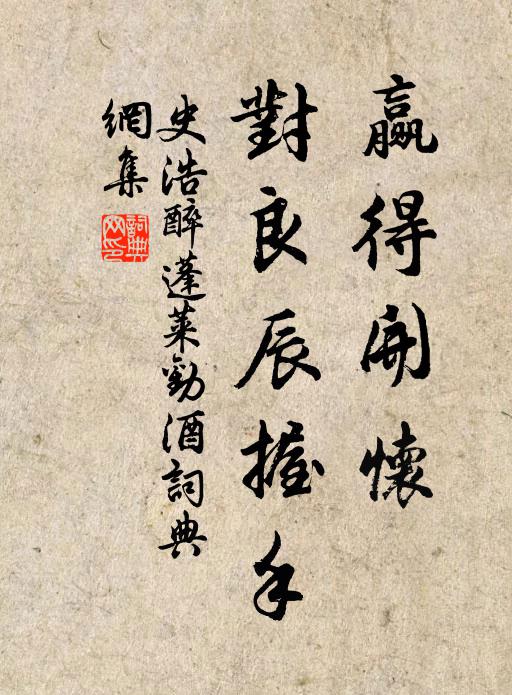 贏得開懷
對良辰握手
史浩醉蓬萊勸酒詞典
網集
詞典
网印